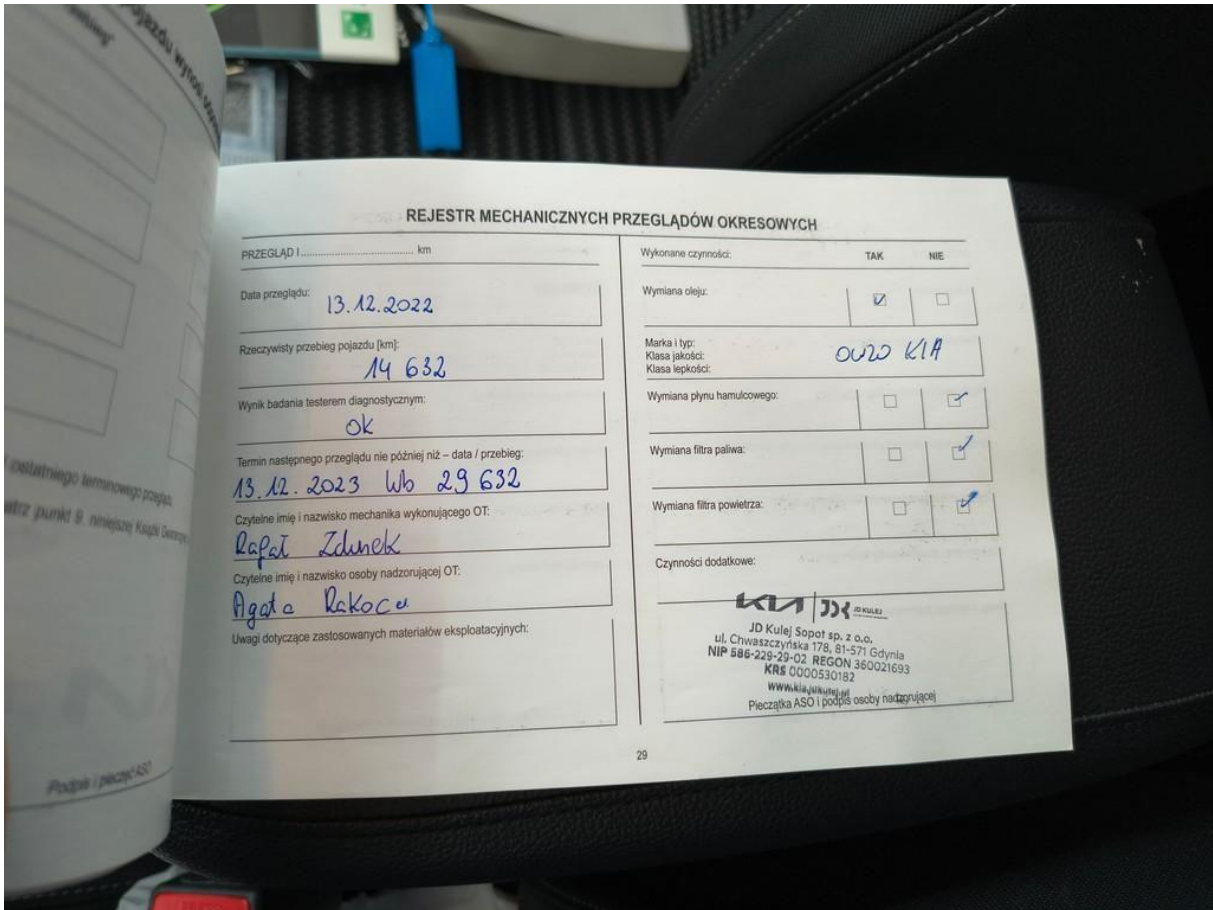 REJESTR MECHANICZNYCH PRZEGLĄDÓW OKRESOWYCH
PRZEGLĄD I........................................ km
Data przeglądu:
13.12.2022
Rzeczywisty przebieg pojazdu [km]:
14 632
Wynik badania testerem diagnostycznym:
ok
Termin następnego przeglądu nie później niż – data / przebieg:
13.12.2023 lub 29 632
Czytelne imię i nazwisko mechanika wykonującego OT:
Rafał Zdunek
Czytelne imię i nazwisko osoby nadzorującej OT:
Agata
Uwagi dotyczące zastosowanych materiałów eksploatacyjnych:
Wykonane czynności: TAK NIE
Wymiana oleju:
Marka i typ:
Klasa jakości:
Klasa lepkości:
0W20 KIA
Wymiana płynu hamulcowego:
Wymiana filtra paliwa:
Wymiana filtra powietrza:
Czynności dodatkowe:
KIA JD KULEJ
JD Kulej Sopot sp. z o.o.
ul. Chwaszczyńska 178, 81-571 Gdynia
NIP 586-229-29-02 REGON 360021693
KRS 0000530182
www.kia.jdkulej.pl
Pieczątka ASO i podpis osoby nadzorującej
29
ostatniego terminowego przeglądu
punkt 9. niniejszej Książki
Podpis i pieczęć ASO